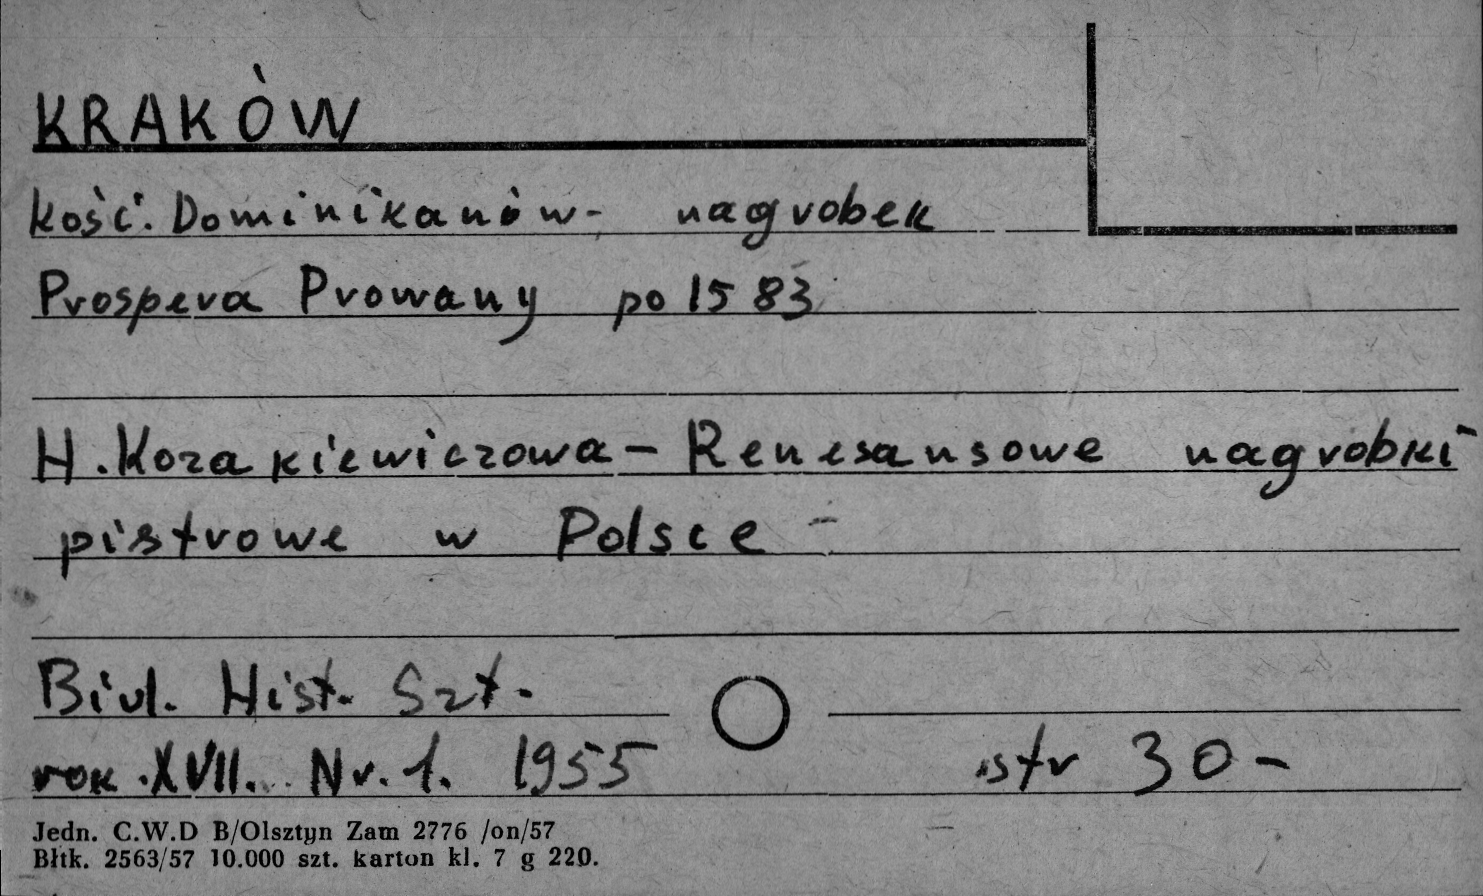 KRAKÓW
kość. Dominikanów - nagrobek
Prospera Prowany po 1583
H. Kozakiewiczowa - Renesansowe nagrobki
pistrowe w Polsce -
Biul. Hist. Szt.
rok. XVII. Nr. 1. 1955 str 30 -
Jedn. C.W.D B/Olsztyn Zam 2776 /on/57
Błtk. 2563/57 10.000 szt. karton kl. 7 g 220.